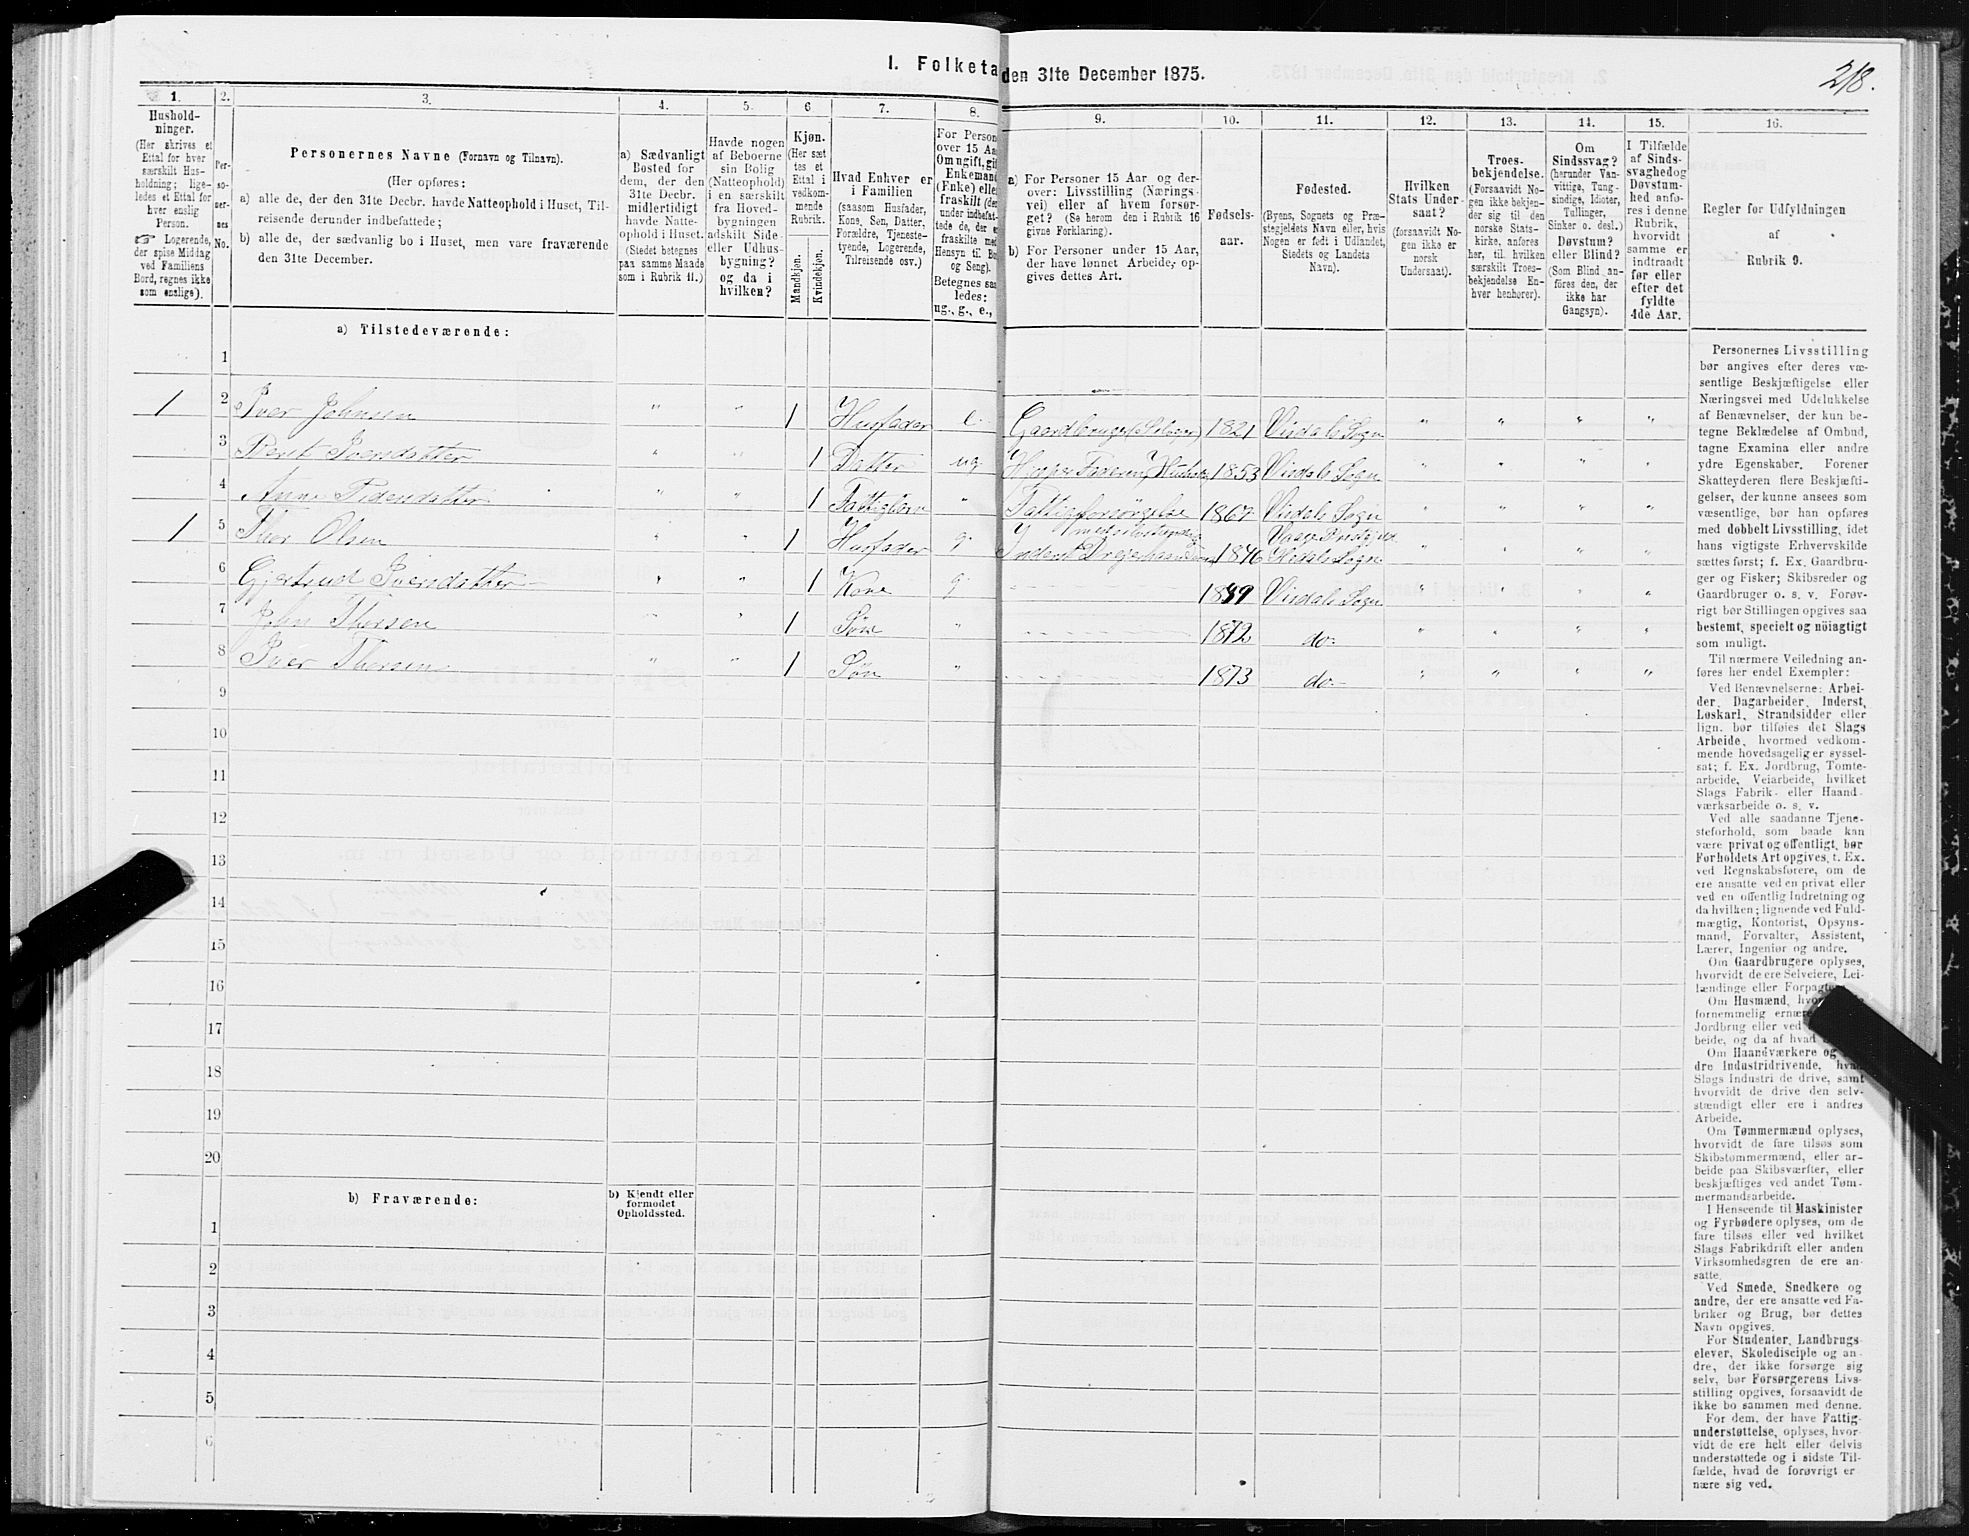 I. Folketa den 31te December 1875.
218.
1. 2. 3. 4. 5. 6 7. 8. 9. 10. 11. 12. 13. 14. 15. 16.
Hushold-
ninger.
(Her skrives et
Ettal for hver
særskilt Hus-
holdning; lige-
ledes et Ettal for
hver enslig
Person.
☞ Logerende,
der spise Middag
ved Familiens
Bord, regnes ikke
som enslige).
Per-
so-
ner-
nes
No.
Personernes Navne (Fornavn og Tilnavn).
(Her opføres:
a) alle de, der den 31te Decbr. havde Natteophold i Huset, Til-
reisende derunder indbefattede;
b) alle de, der sædvanlig bo i Huset, men vare fraværende
den 31te December.
a) Sædvanligt
Bosted for
dem, der den
31te Decbr.
midlertidigt
havde Natte-
ophold i Huset.
(Stedet betegnes
paa samme Maade
som i Rubrik 11.)
Havde nogen
af Beboerne
sin Bolig
(Natteophold)
i en særskilt
fra Hoved-
bygningen
adskilt Side-
eller Udhus-
bygning?
og da i
hvilken?
Kjøn.
(Her sæt
tes et
Ettal i
vedkom-
mende
Rubrik.
Mandkjøn.
Kvindekjøn.
Hvad Enhver er
i Familien
(saasom Husfader,
Kone, Søn, Datter,
Forældre, Tjeneste-
tyende, Logerende,
Tilreisende osv.)
For Person
over 15 Aa
Om ugift, gif
Enkemand
(Enke) elle
fraskilt (de
under indbefat-
tede de, der e
fraskilte med
Hensyn til Bo
og Seng).
Betegnes saa
ledes:
ug., g., e.,
a) For Personer 15 Aar og der-
over: Livsstilling (Nærings-
vei) eller af hvem forsør-
get? (Se herom den i Rubrik 16
givne Forklaring).
b) For Personer under 15 Aar,
der have lønnet Arbeide, op-
gives dettes Art.
Fødsels-
aar.
Fødested.
(Byens, Sognets og Præ-
stegjeldets Navn eller, hvis
Nogen er født i Udlandet,
Stedets og Landets
Navn).
Hvilken
Stats Under-
saat?
(forsaavidt No-
gen ikke er
norsk
Undersaat).
Troes-
bekjendelse.
(Forsaavidt No-
gen ikke bekjen-
der sig til den
norske Stats-
kirke, anføres
her, til hvilken
særskilt Troes-
bekjendelse En-
hver henhører).
Om
Sindssvag?
(herunder Van-
vittige, Tung-
sindige, Idioter,
Tullinger,
Sinker o. desl.)
Døvstum?
eller Blind?
(Som Blind an-
føres den, der
ikke har
Gangsyn).
I Tilfælde
af Sinds-
svaghed og
Døvstum-
hed anfø-
res i denne
Rubrik,
hvorvidt
samme er
indtraadt
før eller
efter det
fyldte
4de Aar.
Regler for Udfyldningen
af
Rubrik 9.
a) Tilstedeværende:
1
1 2 Iver Johnsen " " 1 Husfader e. Gaardbruger (Selveier) 1821 Virdals Sogn " " " "
3 Beret Iversdatter " " 1 Datter ug. 1853 Virdals Sogn " " " "
4 Anne " " 1 Fattigbarn " Fattigforsørgelse 1867 Virdals Sogn " " " "
1 5 Thor Olsen " " 1 Husfader g. Inderst 1846 " " " "
6 Gjertrud Iversdatter " " 1 Kone g. 1849 Viirdals Sogn " " " "
7 John Thorsen " " 1 Søn " 1872 do. " " " "
8 Iver Thorsen " " 1 Søn " 1873 do. " " " "
9
10
11
12
13
14
15
16
17
18
19
20
b) Fraværende:
b) Kjendt eller
formodet
Opholdssted.
1
2
3
4
5
6
Personernes Livsstilling
bør angives efter deres væ-
sentlige Beskjæftigelse eller
Næringsvei med Udelukkelse
af Benævnelser, der kun be-
tegne Beklædelse af Ombud,
tagne Examina eller andre
ydre Egenskaber. Forener
Skatteyderen flere Beskjæfti-
gelser, der kunne ansees som
væsentlige, bør han opføres
med dobbelt Livsstilling, idet
hans vigtigste Erhvervskilde
sættes først; f. Ex. Gaardbru-
ger og Fisker; Skibsreder og
Gaardbruger o. s. v. Forøv-
rigt bør Stillingen opgives saa
bestemt, specielt og nöiagtigt
som muligt.
Til nærmere Veiledning an-
føres her endel Exempler:
Ved Benævnelserne: Arbei-
der, Dagarbeider, Inderst,
Løskarl, Strandsidder eller
lign. bør tilføies det Slags
Arbeide, hvormed vedkom-
mende hovedsagelig er syssel-
sat; f. Ex. Jordbrug, Tomte-
arbeide, Veiarbeide, hvilket
Slags Fabrik- eller Haand-
værksarbeide o. s. v.
Ved alle saadanne Tjene-
steforhold, som baade kan
være privat og offentligt, bør
Forholdets Art opgives, f. Ex.
ved Regnskabsførere, om de
ere ansatte ved en privat eller
ved en offentlig Indretning og
da hvilken; lignende ved Fuld-
mægtig, Kontorist, Opsyns-
mand, Forvalter, Assistent,
Lærer, Ingeniør og andre.
Om Gaardbrugere oplyses,
hvorvidt de ere Selveiere, Lei-
lændinge eller
Om Husmænd,
fornemmelig
Jordbrug eller ved
beide, og da af hvad
Om Haandværkere og
dre Industridrivende,
Slags Industri de drive, samt
hvorvidt de drive den selv-
stændigt eller ere i andres
Arbeide.
Om Tømmermænd oplyses,
hvorvidt de fare tilsøs som
Skibstømmermænd, eller ar-
beide paa Skibsværfter, eller
beskjæftiges ved andet Tøm-
mermandsarbeide.
I Henseende til Maskinister
og Fyrbødere oplyses, om de
fare tilsøs eller ved hvilket
Slags Fabrikdrift eller anden
Virksomhedsgren de ere an-
satte.
Ved Smede, Snedkere og
andre, der ere ansatte ved Fa-
briker og Brug, bør dettes
Navn opgives.
For Studenter, Landbrugs-
elever, Skoledisciple og an-
dre, der ikke forsørge sig
selv, bør Forsørgerens Livs-
stilling opgives, forsaavidt de
ikke bo sammen med denne.
For dem, der have Fattig-
understøttelse, oplyses, hvor-
vidt de ere helt eller delvis
understøttede og i sidste Til-
fælde, hvad de forøvrigt er-
nære sig ved.